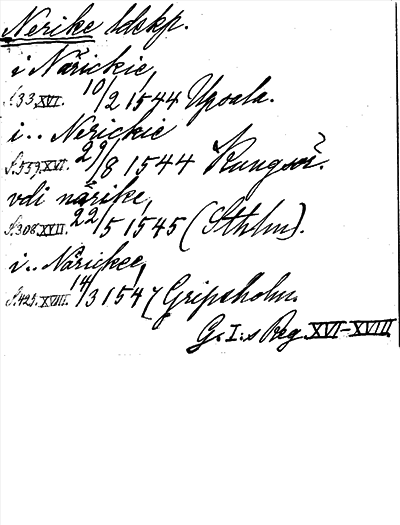 Nerike ldskp.
i Närickie,
S. 33, XVI. 10/2 1544 Upsala.
i.. Nerickie
S. 539, XVI. 29/8 1544 Kungsör.
vdi närike,
S. 308, XVII. 22/5 1545 (Sthlm).
i.. Närickee,
S. 425, XVIII. 14/3 1547 Gripsholm.
G. I:s Reg. XVI-XVIII.